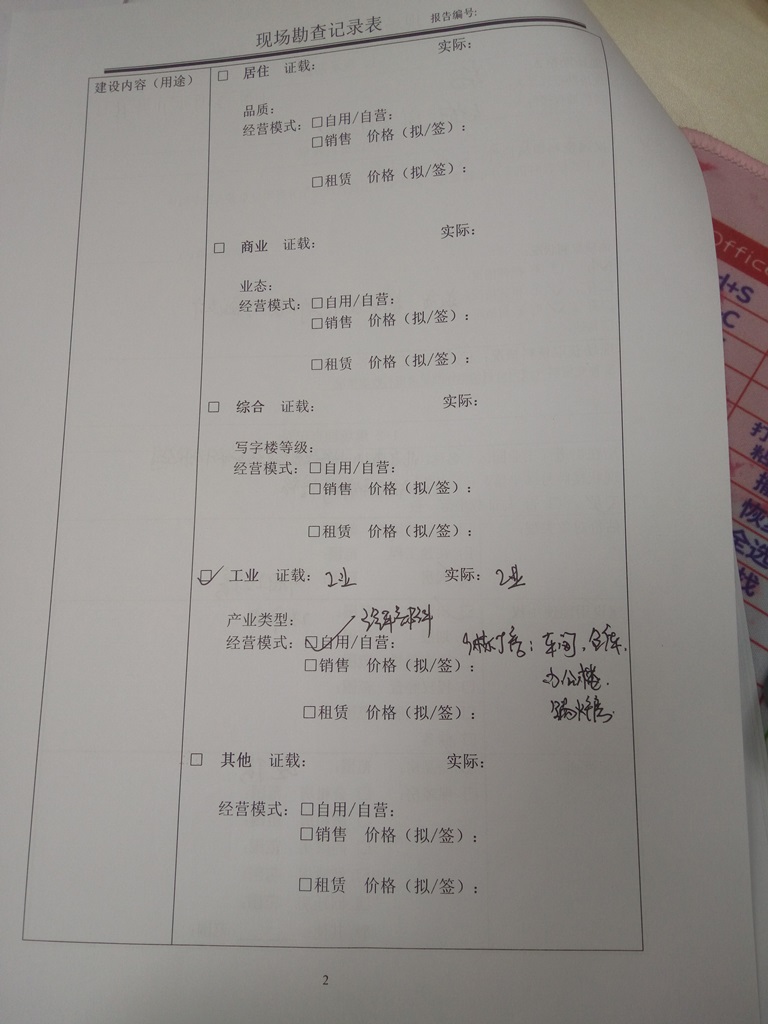 现场勘查记录表
报告编号:
建设内容（用途）
□ 居住 证载: 实际:
品质:
经营模式: □自用/自营:
□销售 价格（拟/签）:
□租赁 价格（拟/签）:
□ 商业 证载: 实际:
业态:
经营模式: □自用/自营:
□销售 价格（拟/签）:
□租赁 价格（拟/签）:
□ 综合 证载: 实际:
写字楼等级:
经营模式: □自用/自营:
□销售 价格（拟/签）:
□租赁 价格（拟/签）:
☑ 工业 证载: 工业 实际: 工业
产业类型:
经营模式: ☑自用/自营: 车间、仓库、
□销售 价格（拟/签）: 办公楼、
□租赁 价格（拟/签）: 锅炉房
□ 其他 证载: 实际:
经营模式: □自用/自营:
□销售 价格（拟/签）:
□租赁 价格（拟/签）:
2
Office
+S
C
恢
全选
找